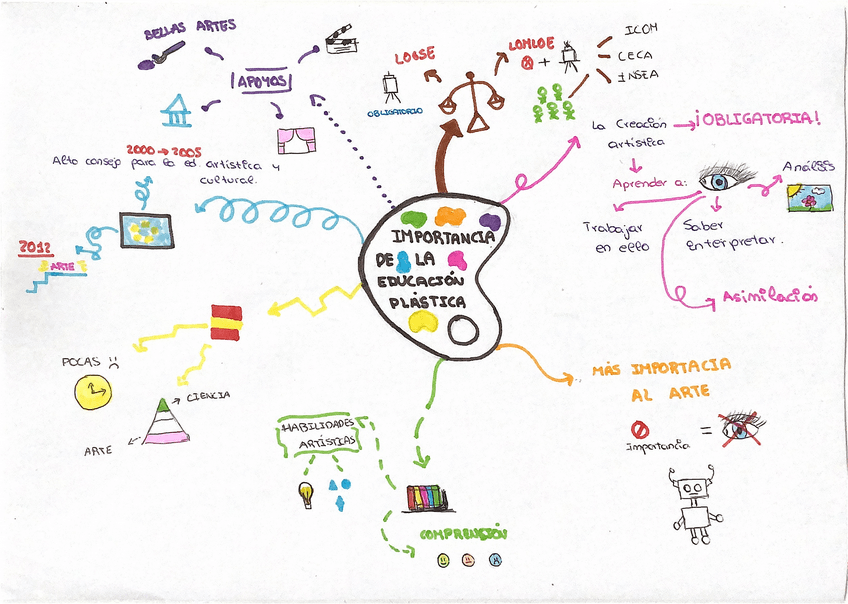 BELLAS ARTES
¡APOYOS!
LOGSE
OBLIGATORIO
LOMLOE
+
ICOM
CECA
INSEA
La Creación
artística
¡OBLIGATORIA!
Aprender a:
Análisis
Trabajar
en ello
Saber
interpretar.
Asimilación
2000 → 2005
Alto consejo para la ed artística y
cultural.
2012
ARTE
IMPORTANCIA
DE LA
EDUCACIÓN
PLÁSTICA
POCAS
CIENCIA
ARTE
MÁS IMPORTACIA
AL ARTE
Importancia
=
HABILIDADES
ARTÍSTICAS
COMPRENSIÓN